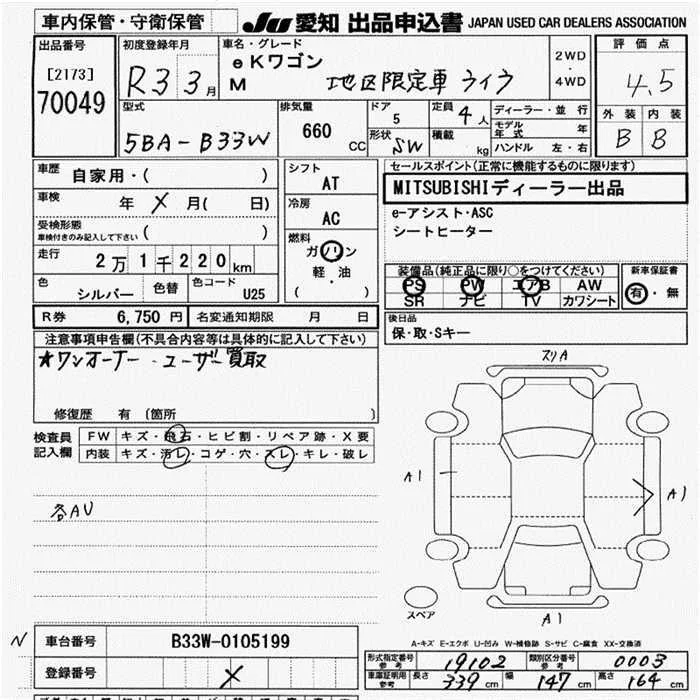 車内保管・守衛保管
JU 愛知 出品申込書 JAPAN USED CAR DEALERS ASSOCIATION
出品番号
[2173]
70049
初度登録年月
R3 3月
車名・グレード
eKワゴン
M 地区限定車 ライラ
2WD
・
4WD
評価点
4.5
外装 内装
B B
型式
5BA-B33W
排気量
660 CC
ドア
5
形状
SW
定員 4 人
積載 kg
ディーラー・並行
モデル年式 年
ハンドル 左・右
車歴
自家用・( )
車検 年 X 月( 日)
受検形態
車検付きのみ記入して下さい ( )
走行
2万1千220km
色
シルバー
色替
色コード
U25
シフト
AT
冷房
AC
燃料
ガソリン
軽・油
( )
セールスポイント(正常に機能するものに限ります)
MITSUBISHIディーラー出品
e-アシスト・ASC
シートヒーター
装備品(純正品に限り○をつけてください)
PS PW エアB AW
SR ナビ TV カワシート
新車保証書
有・無
R券 6,750 円 名変通知期限 月 日
後日品
保・取・Sキー
注意事項申告欄(不具合内容等は具体的に記入して下さい)
★ワンオーナー・ユーザー買取
修復歴 有 (箇所 )
検査員
記入欄
FW キズ・飛石・ヒビ割・リペア跡・X要
内装 キズ・汚レ・コゲ・穴・スレ・キレ・破レ
各AU
スリA
A1
A1
スペア
A1
A-キズ E-エクボ U-凹み W-補修跡 S-サビ C-腐食 XX-交換済
N 車台番号 B33W-0105199
登録番号 X
形式指定番号
参考
19102
類別区分番号
参考
0003
車庫証明用
参考
長さ 339 cm 幅 147 cm 高さ 164 cm